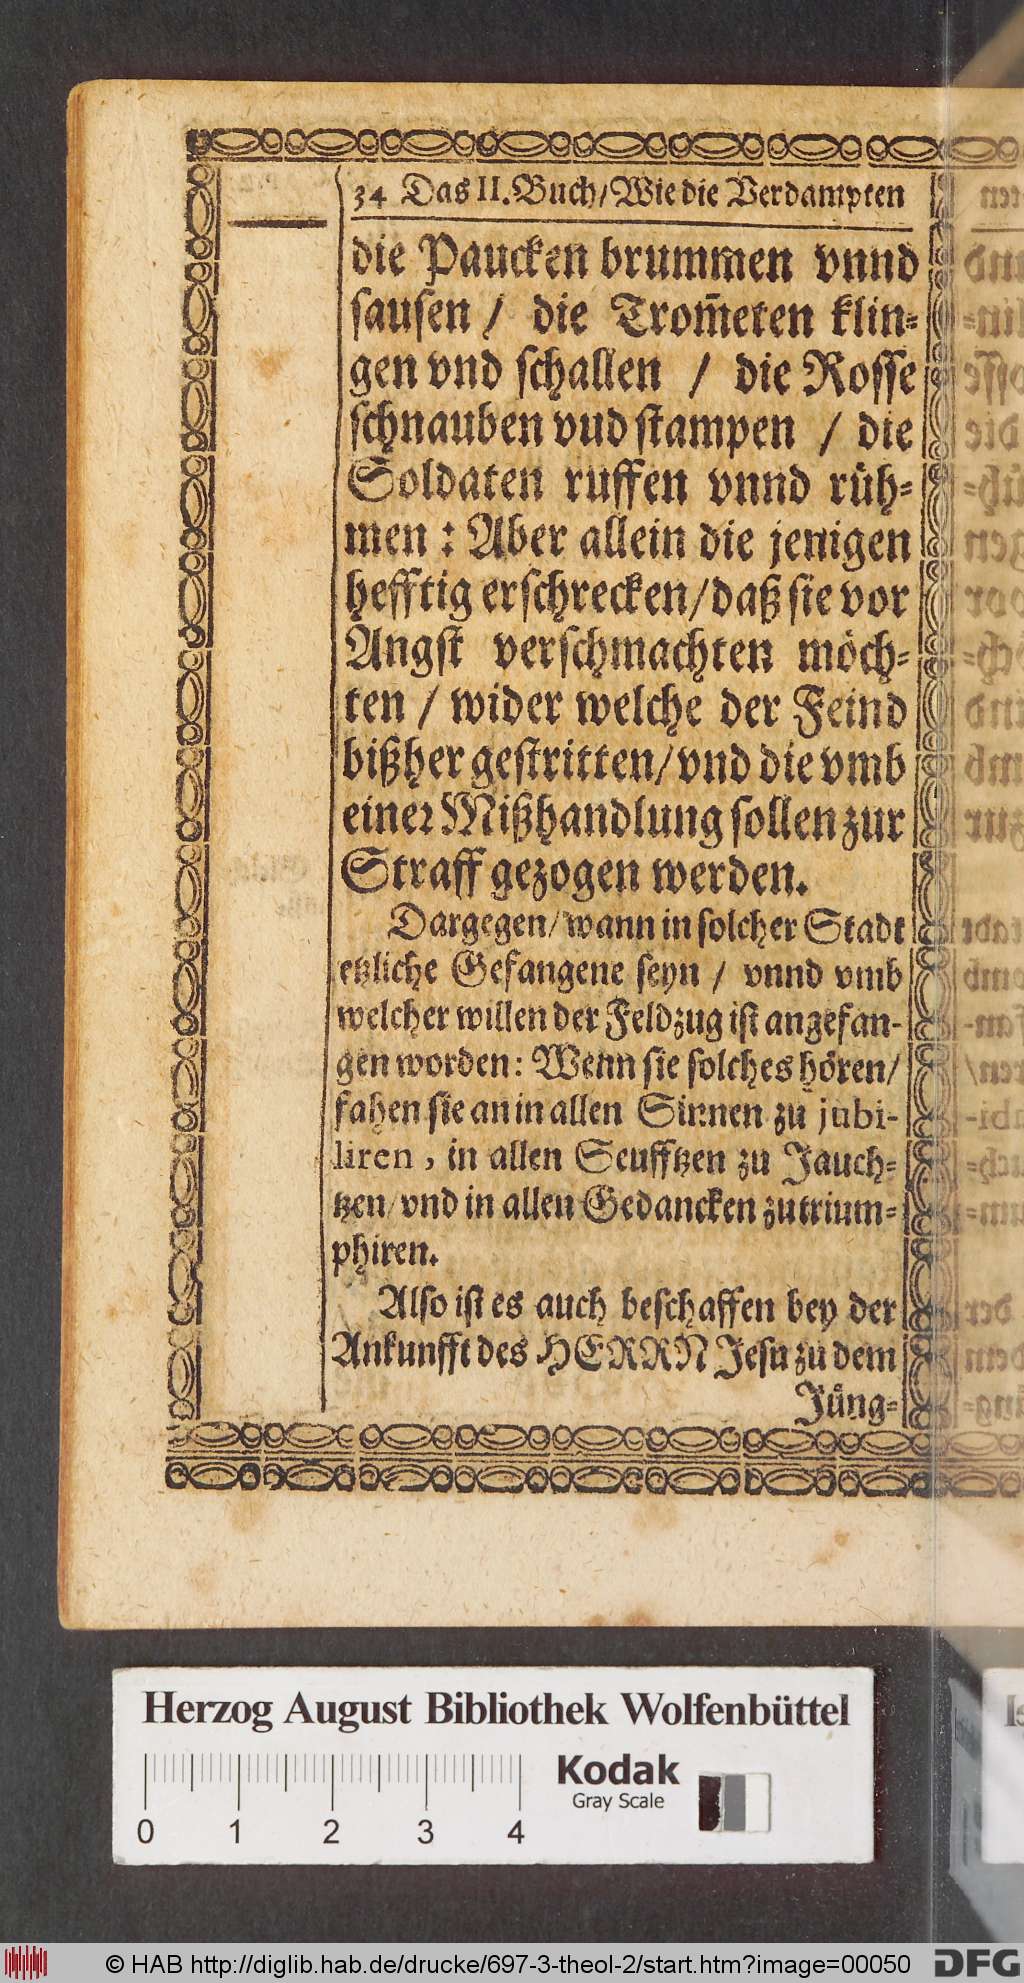 34 Das II. Buch / Wie die Verdampten
die Paucken brummen vnnd
sausen / die Trom̃eten klin-
gen vnd schallen / die Rosse
schnauben vud stampen / die
Soldaten ruffen vnnd rüh-
men : Aber allein die jenigen
hefftig erschrecken / daß sie vor
Angst verschmachten möch-
ten / wider welche der Feind
bißher gestritten / vnd die vmb
einer Mißhandlung sollen zur
Straff gezogen werden.
Dargegen / wann in solcher Stadt
etzliche Gefangene seyn / vnnd vmb
welcher willen der Feldzug ist angefan-
gen worden: Wenn sie solches hören /
fahen sie an in allen Sinnen zu jubi-
liren , in allen Seufftzen zu Jauch-
tzen / vnd in allen Gedancken zu trium-
phiren.
Also ist es auch beschaffen bey der
Ankunfft des HERRN Jesu zu dem
Jüng-
Herzog August Bibliothek Wolfenbüttel
Kodak
Gray Scale
0 1 2 3 4
© HAB http://diglib.hab.de/drucke/697-3-theol-2/start.htm?image=00050
DFG